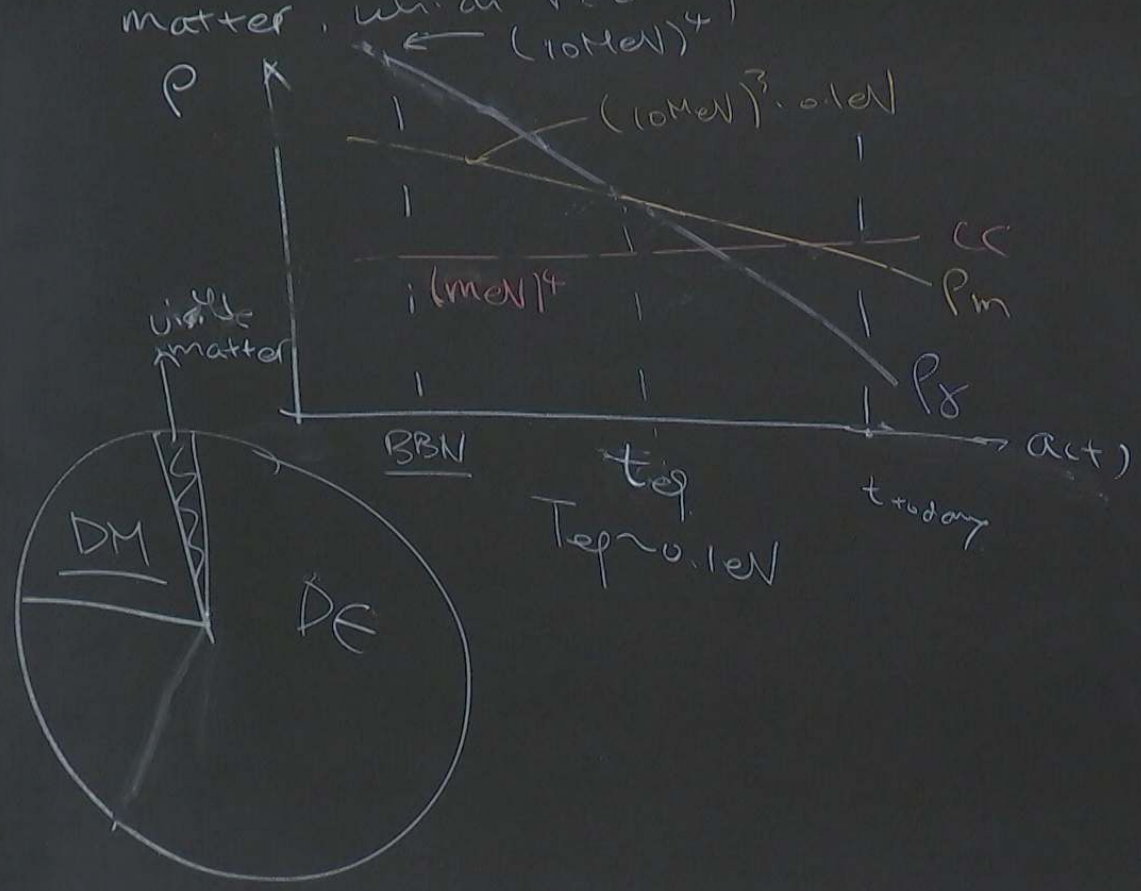 matter, which
(10MeV)⁴
ρ
(10MeV)³·0.1eV
CC
(meV)⁴
ρm
visible
matter
ργ
BBN
teq
a(t)
ttoday
Teq~0.1eV
DM
DE